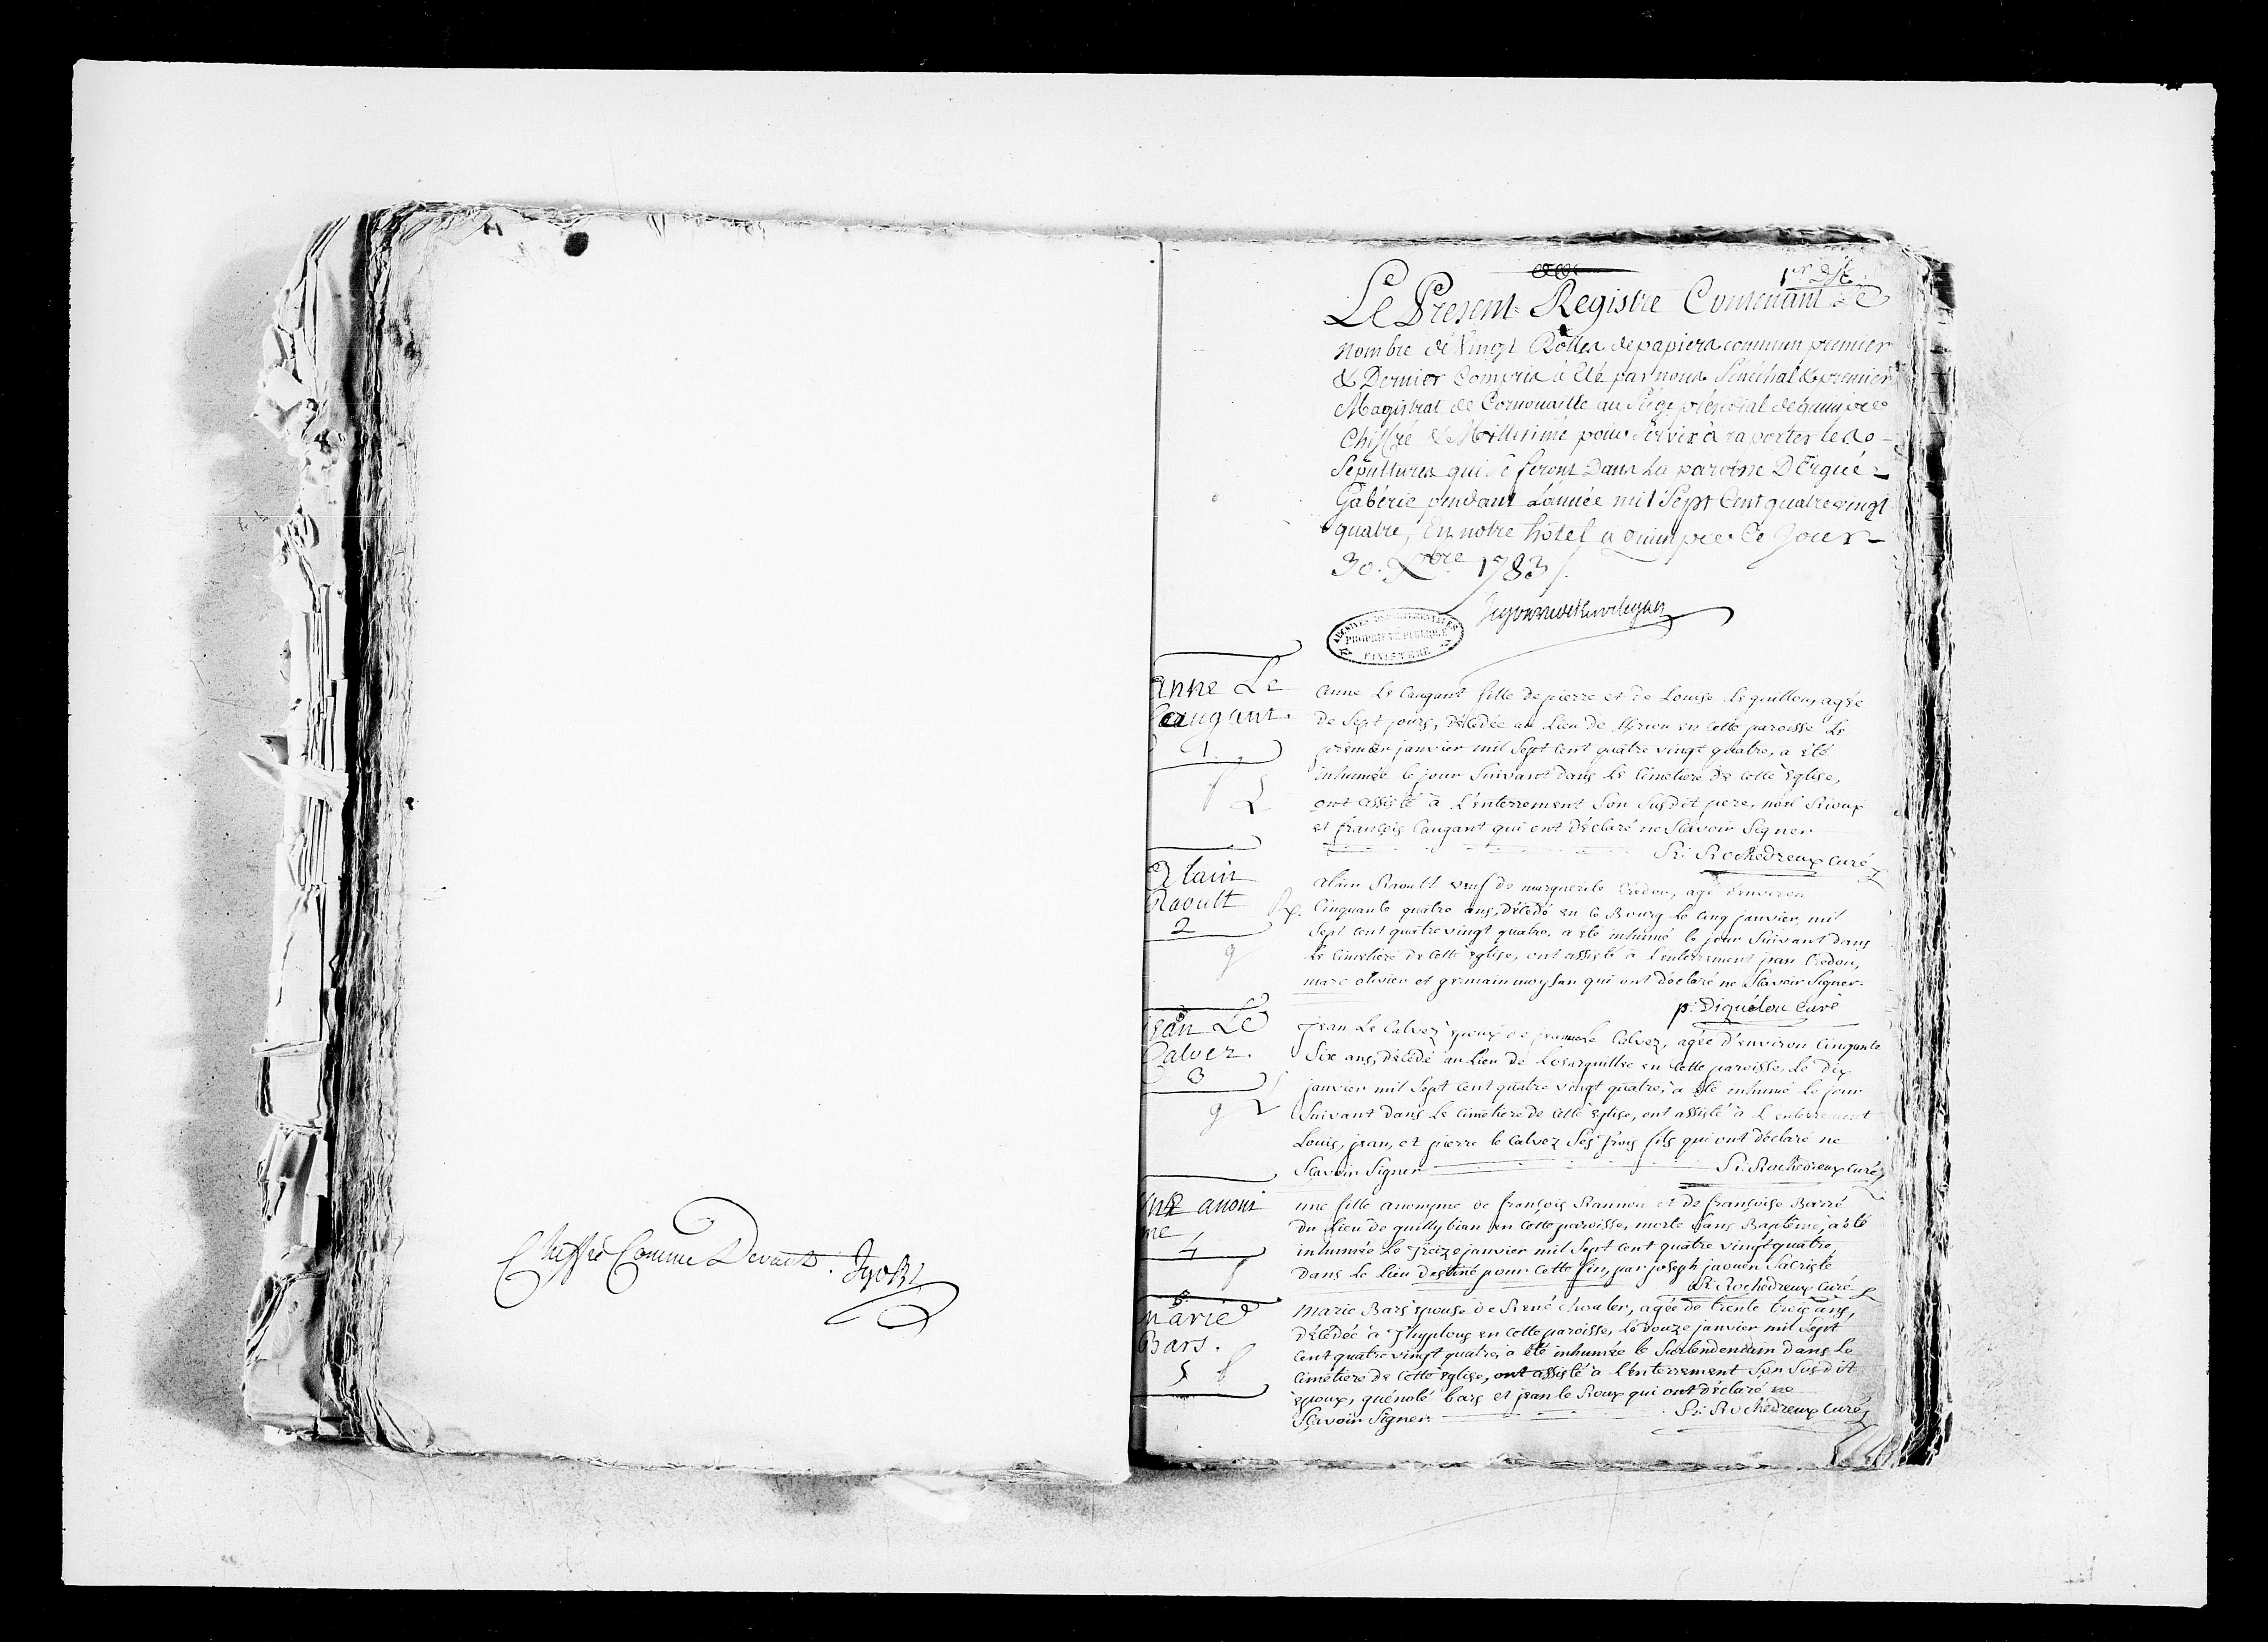 Chiffré Comme Devant.
1er
Le Present Registre Contenant Le
nombre de vingt Rolles de papiers commun premier
& Dernier Compris a été par nous Sénéchal & premier
Magistrat de Cornouaille au Siége présidial de quimper
Chiffré & Millesimé pour servir à raporter les
Sépultures qui se feront Dans La paroisse D'Ergué-
Gabéric pendant L'année mil Sept Cent quatre vingt
quatre, En notre hôtel a quimper Ce Jour
30. Xbre 1783
ARCHIVES DEPARTEMENTALES
PROPRIETE PUBLIQUE
FINISTERE
anne Le
Caugant
1
anne Le Caugant fille de pierre et de Louise Le quillou, agée
de Sept jours, décédée au Lieu de en cette paroisse Le
premier janvier mil Sept cent quatre vingt quatre, a été
inhumée le jour Suivant dans Le Cimetiere de cette Eglise,
ont assisté à L'enterrement Son Susdit pere, noel Rioux
et françois Caugant qui ont déclaré ne Scavoir Signer
R: Rochedreux Curé
Alain
Raoult
2
Alain Raoult veuf de marguerite Credou, agé d'environ
Cinquante quatre ans, décédé en le Bourg Le cinq janvier mil
Sept cent quatre vingt quatre, a été inhumé le jour Suivant dans
Le Cimetiere de cette Eglise, ont assisté à L'enterrement jean Credou,
marc olivier et germain moysan qui ont déclaré ne Scavoir Signer.
p. Diquélou Curé
jean Le
Calvez.
3
jean Le Calvez epoux de jeanne Le Calvez, agée d'environ Cinquante
Six ans, décédé au Lieu de en cette paroisse, Le dix
janvier mil Sept cent quatre vingt quatre, a été inhumé Le jour
Suivant dans Le Cimetiere de cette Eglise, ont assisté à L'enterrement
Louis, jean, et pierre le Calvez Ses trois fils qui ont déclaré ne
Scavoir Signer
R: Rochedreux Curé
une anoni
me
4
une fille anonyme de françois Rannou et de françoise Barré
du Lieu de quillybian en cette paroisse, morte Sans Baptême, a été
inhumée Le treize janvier mil Sept cent quatre vingt quatre
dans Le Lieu destiné pour cette fin, par joseph jaouen Sacriste
R: Rochedreux Curé
Marie
Bars.
5
Marie Bars epouse de René agée de trente trois ans,
décédée à en cette paroisse, Le douze janvier mil Sept
Cent quatre vingt quatre, a été inhumée le Surlendemain dans Le
Cimetiere de cette Eglise, ont assisté à L'enterrement Son Susdit
epoux, guénolé bars et jean le Rioux qui ont déclaré ne
Scavoir Signer.
R: Rochedreux Curé